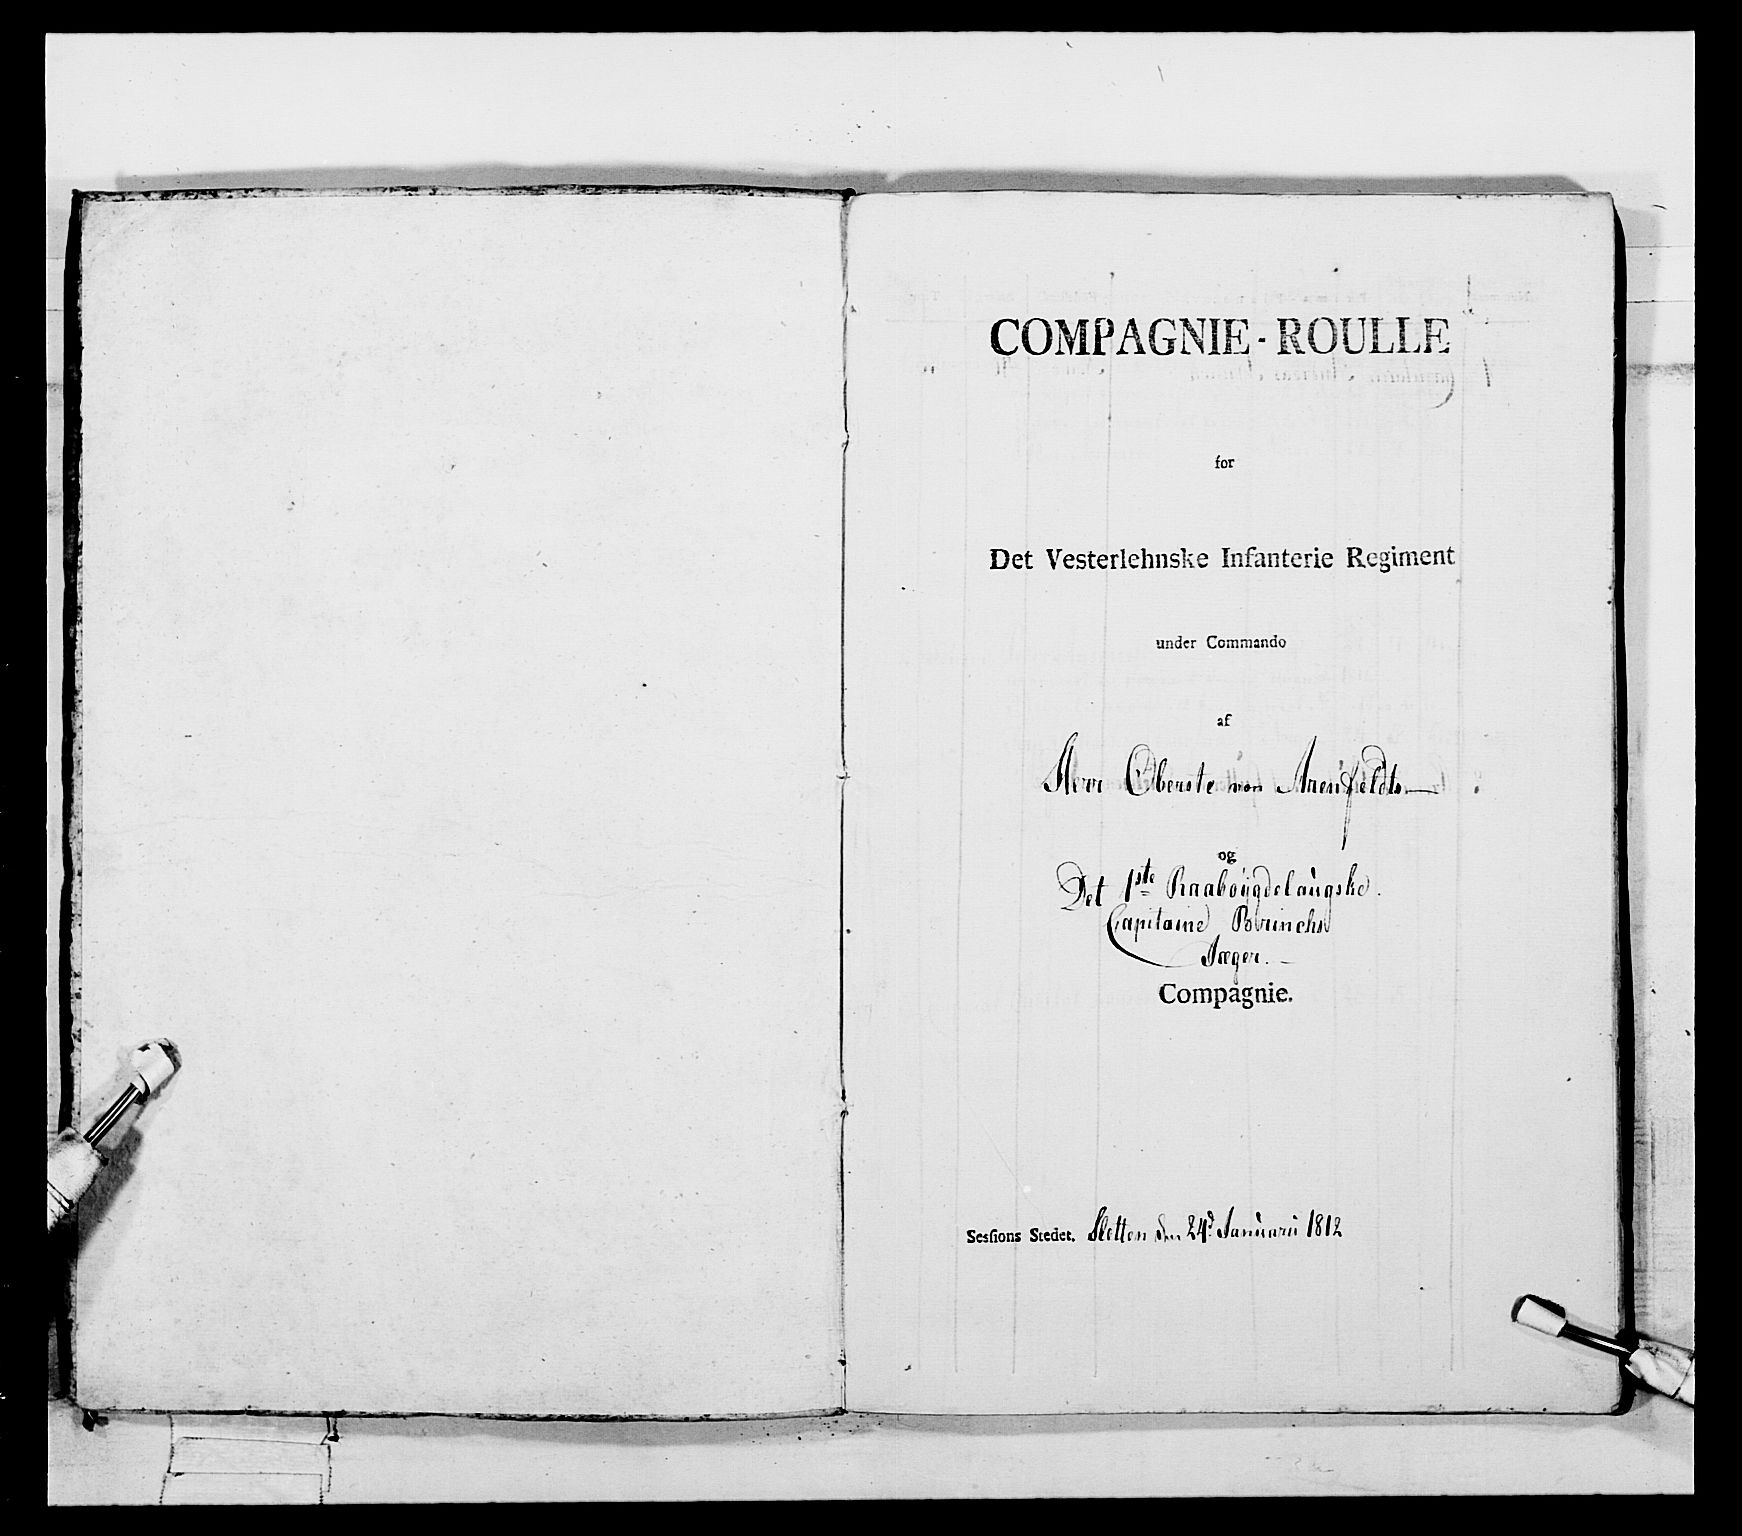 COMPAGNIE-ROULLE
for
Det Vesterlehnske Infanterie Regiment
under Commando
af
Herr Oberste von Arenfeldts
og
Det 1ste Raabøygdelaugske.
Capitaine Brinchs
Jæger.
Compagnie.
Sesſions Stedet. Sletten den 24d. Januarii 1812